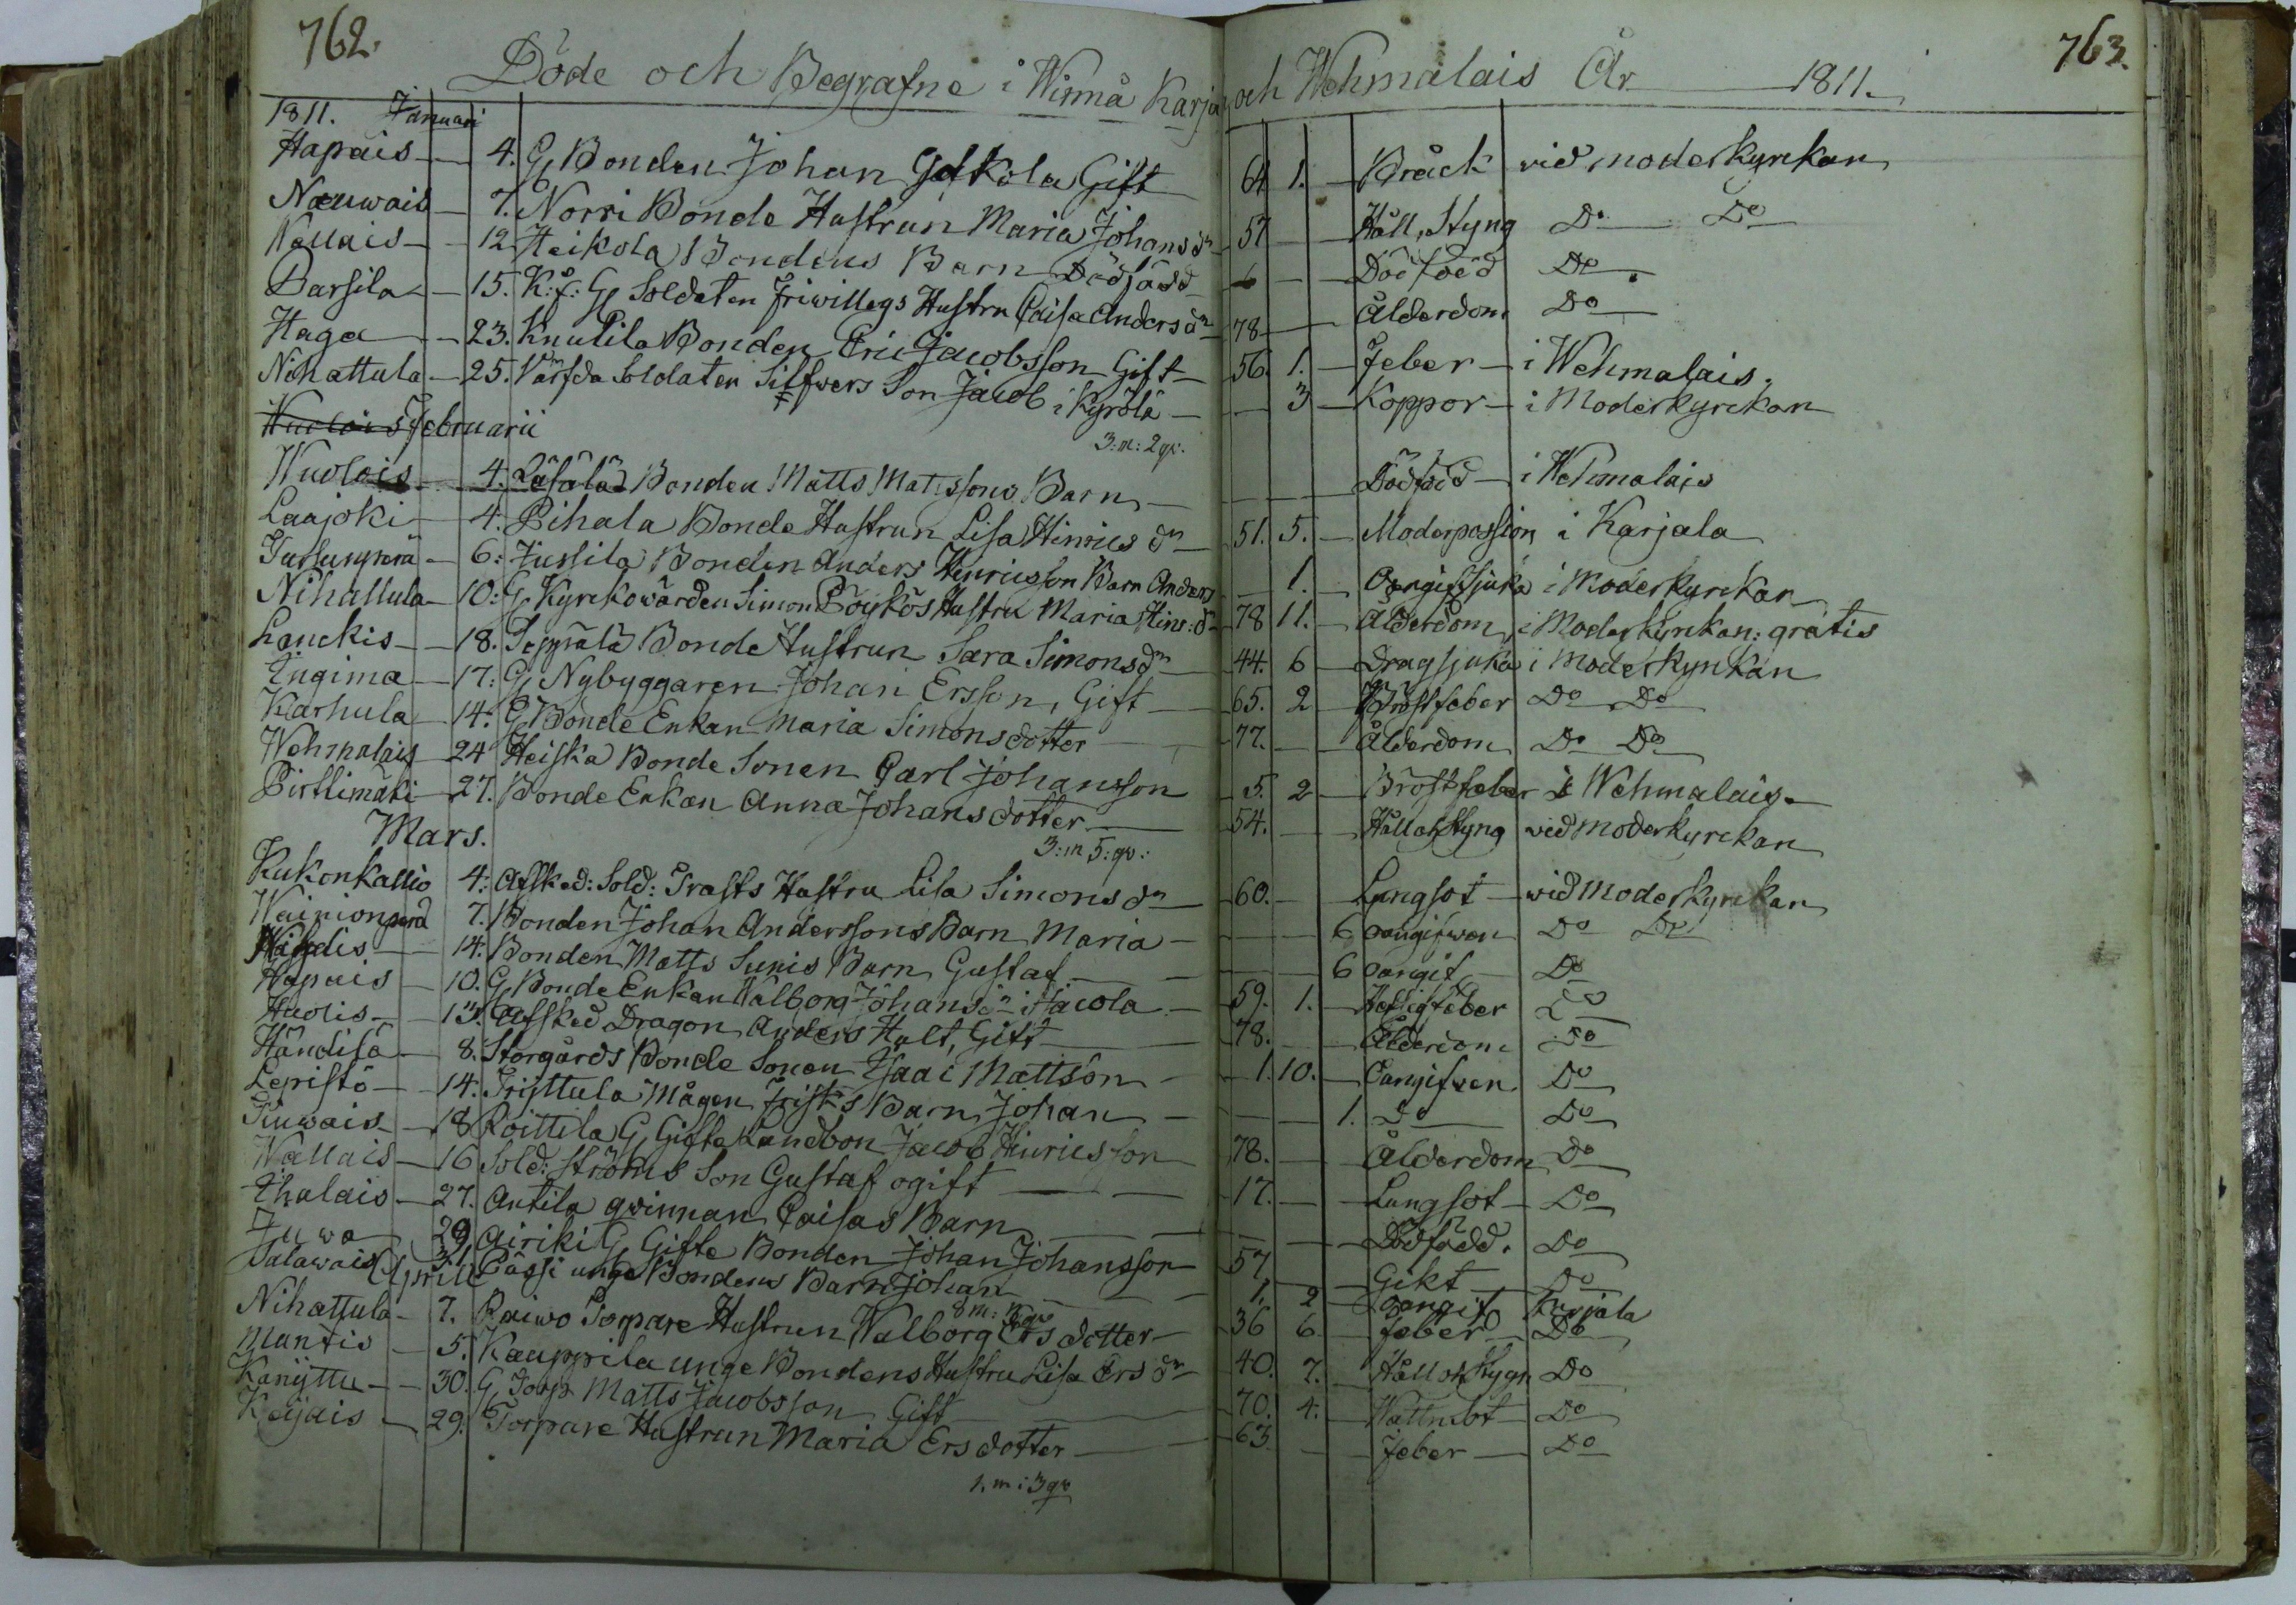 762.
Döde och Begrafne i Wirmå Karja och Wehmalais År 1811.
763.
1811. Januari
Hapais 4. G. Bonden Johan Kola Gift 64 1. Bråck vid moderkyrkan
Nauwais 7. Norri Bonde Hustrun Maria Johans dr 57 Håll, Styng Do Do
Wallais 12 Heikola Bondens Barn Dödfödd Dödföd Do
Parsila 15. K: f: G. Soldaten Friwilligs Hustru Caisa Anders dr 78 Ålderdom Do
Haga 23. Knutila Bonden Eric Jacobsson Gift 56. 1. Feber i Wehmalais.
Nihattula 25. Värfda Soldaten Silfwers Son Jacob i Kyrölä 3 Koppor i Moderkyrckan
Februarii
3: m: 2 qv.
Wuolois 4. Bonden Matts Mattssons Barn Dödföd i Wehmalais
Laajoki 4. Pihala Bonde Hustrun Lisa Hinrics dr 51. 5. Moderpassion i Karjala
6: Jussila Bonden Anders Henricsson Barn Anders 1. i Moderkyrckan
Nihattula 10: G. Kyrckowärden Simon Pöykös Hustru Maria Hins: dr 78 11. Ålderdom, i Moderkyrckan: gratis
Lauckis 18. Seppälä Bonde Hustrun Sara Simonsdr 44. 6 Dragsjuka i Moderkyrckan
Engima 17: G. Nybyggaren Johan Ersson, Gift 65. 2 Bröstfeber Do Do
Karhula 14: G. Bonde Enkan Maria Simonsdotter 77. Ålderdom Do Do
Wehmalais 24 Heiska Bonde Sonen Carl Johansson 5. 2 Bröstfeber i Wehmalais.
Pirttimäki 27. Bonde Enkan Anna Johansdotter 54. Håll och Styng wid Moderkyrckan
Mars.
3: m 5: qv:
Kukonkallio 4: Afsked: Sold: Trasts Hustru Lisa Simonsdr 60. Lungsot wid Moderkyrckan
Wainionperä 7. Bonden Johan Anderssons Barn Maria 6 oangifwen Do Do
14. Bonden Matts Sunis Barn Gustaf 6 oangif Do
Hapais 10. G. Bonde Enkan Walborg Johans dr i Jacola 59. 1. Hettigfeber Do
Huolis 13. Afsked Dragon Anders Hult, Gift 78. Ålderdom Do
Händilä 8. Storgårds Bonde Sonen Isaac Mattson 1. 10. Oangifven Do
Lepistö 14. Mågen Barn Johan 1. Do Do
18 Roittila G. Gifte Landbon Jacob Hinricsson 78. Ålderdom Do
Wallais 16 Sold: Ströms Son Gustaf ogift 17. Lungsot Do
Ehalais 27. Antila qwinnan Caisas Barn Dödfödd. Do
Juwa 29 Airiki G. Gifte Bonden Johan Johansson 57 Gikt Do
Salawais 31. Pässi unge Bondens Barn Johan 1. 2 oangif Do
April
8 m: qv
Nihattula 7. Raiwo Torpare Hustrun Walborg Ers dotter 36 6. feber Karjala Do
Muntis 5. Kauppila unge Bondens Hustru Lisa Ers dr 40. 7. Håll och Stygn Do
Kanyttu 30. G. Torp Matts Jacobsson Gift 70. 4. Wattusot Do
29. Torpare Hustrun Maria Ersdotter 63 Feber Do
1. m: 3 qv